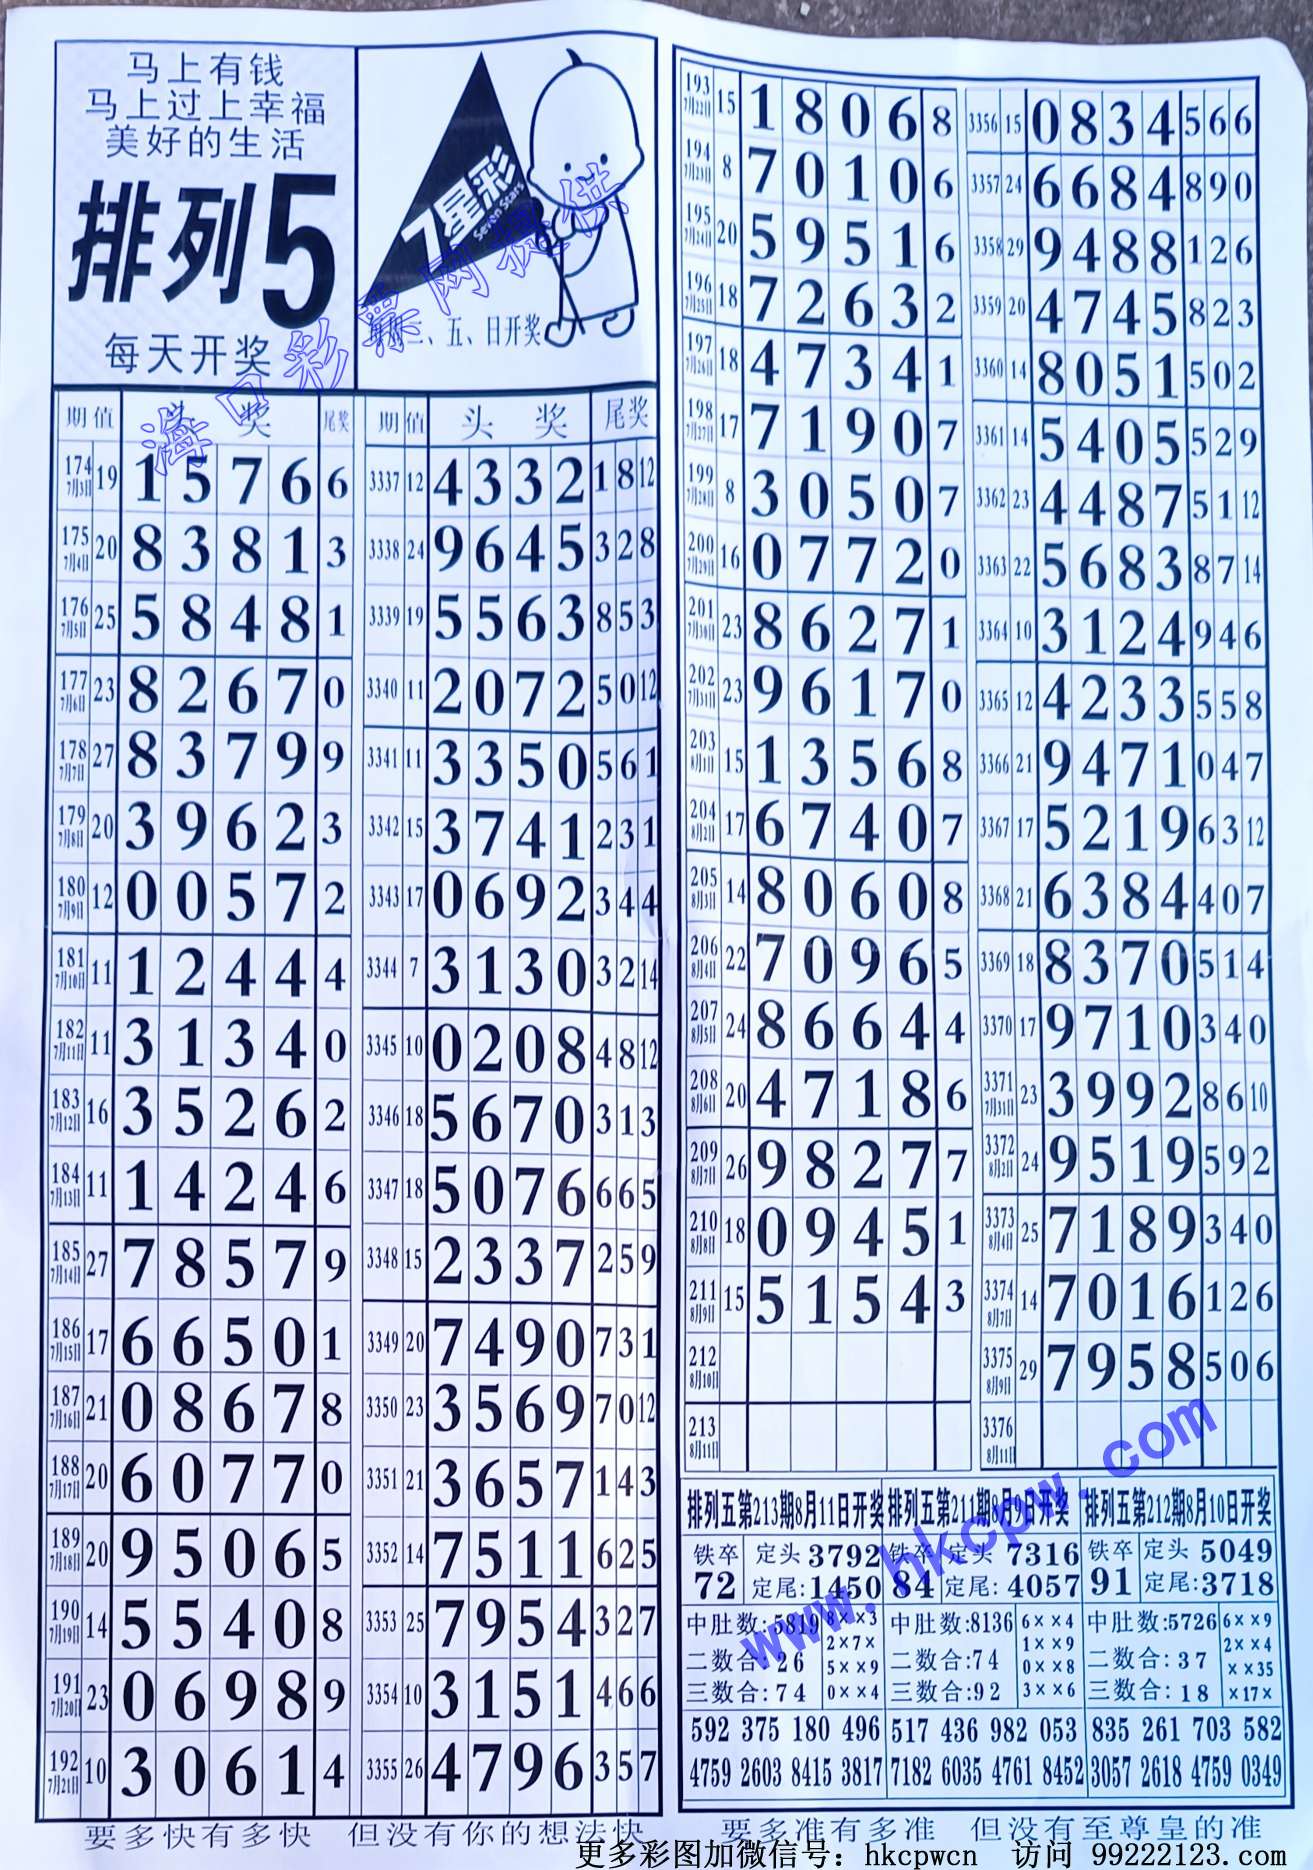 马上有钱
马上过上幸福
美好的生活
排列5
每天开奖
7星彩
Seven Stars
、五、日开奖
海口彩票网提供
期 值 头 奖 尾奖
174 7月3日 19 1 5 7 6 6
175 7月4日 20 8 3 8 1 3
176 7月5日 25 5 8 4 8 1
177 7月6日 23 8 2 6 7 0
178 7月7日 27 8 3 7 9 9
179 7月8日 20 3 9 6 2 3
180 7月9日 12 0 0 5 7 2
181 7月10日 11 1 2 4 4 4
182 7月11日 11 3 1 3 4 0
183 7月12日 16 3 5 2 6 2
184 7月13日 11 1 4 2 4 6
185 7月14日 27 7 8 5 7 9
186 7月15日 17 6 6 5 0 1
187 7月16日 21 0 8 6 7 8
188 7月17日 20 6 0 7 7 0
189 7月18日 20 9 5 0 6 5
190 7月19日 14 5 5 4 0 8
191 7月20日 23 0 6 9 8 9
192 7月21日 10 3 0 6 1 4
期 值 头 奖 尾奖
3337 12 4 3 3 2 1 8 12
3338 24 9 6 4 5 3 2 8
3339 19 5 5 6 3 8 5 3
3340 11 2 0 7 2 5 0 12
3341 11 3 3 5 0 5 6 1
3342 15 3 7 4 1 2 3 1
3343 17 0 6 9 2 3 4 4
3344 7 3 1 3 0 3 2 14
3345 10 0 2 0 8 4 8 12
3346 18 5 6 7 0 3 1 3
3347 18 5 0 7 6 6 6 5
3348 15 2 3 3 7 2 5 9
3349 20 7 4 9 0 7 3 1
3350 23 3 5 6 9 7 0 12
3351 21 3 6 5 7 1 4 3
3352 14 7 5 1 1 6 2 5
3353 25 7 9 5 4 3 2 7
3354 10 3 1 5 1 4 6 6
3355 26 4 7 9 6 3 5 7
193 7月22日 15 1 8 0 6 8
194 7月23日 8 7 0 1 0 6
195 7月24日 20 5 9 5 1 6
196 7月25日 18 7 2 6 3 2
197 7月26日 18 4 7 3 4 1
198 7月27日 17 7 1 9 0 7
199 7月28日 8 3 0 5 0 7
200 7月29日 16 0 7 7 2 0
201 7月30日 23 8 6 2 7 1
202 7月31日 23 9 6 1 7 0
203 8月1日 15 1 3 5 6 8
204 8月2日 17 6 7 4 0 7
205 8月3日 14 8 0 6 0 8
206 8月4日 22 7 0 9 6 5
207 8月5日 24 8 6 6 4 4
208 8月6日 20 4 7 1 8 6
209 8月7日 26 9 8 2 7 7
210 8月8日 18 0 9 4 5 1
211 8月9日 15 5 1 5 4 3
212 8月10日
213 8月11日
3356 15 0 8 3 4 5 6 6
3357 24 6 6 8 4 8 9 0
3358 29 9 4 8 8 1 2 6
3359 20 4 7 4 5 8 2 3
3360 14 8 0 5 1 5 0 2
3361 14 5 4 0 5 5 2 9
3362 23 4 4 8 7 5 1 12
3363 22 5 6 8 3 8 7 14
3364 10 3 1 2 4 9 4 6
3365 12 4 2 3 3 5 5 8
3366 21 9 4 7 1 0 4 7
3367 17 5 2 1 9 6 3 12
3368 21 6 3 8 4 4 0 7
3369 18 8 3 7 0 5 1 4
3370 17 9 7 1 0 3 4 0
3371 7月31日 23 3 9 9 2 8 6 10
3372 8月2日 24 9 5 1 9 5 9 2
3373 8月4日 25 7 1 8 9 3 4 0
3374 8月7日 14 7 0 1 6 1 2 6
3375 8月9日 29 7 9 5 8 5 0 6
3376 8月11日
排列五第213期8月11日开奖
铁卒 72
定头 3792
定尾:1450
中肚数:5819
二数合:26
三数合:74
8××3
2×7×
5××9
0××4
592 375 180 496
4759 2603 8415 3817
排列五第211期8月9日开奖
铁卒 84
定头 7316
定尾:4057
中肚数:8136
二数合:74
三数合:92
6××4
1××9
0××8
3××6
517 436 982 053
7182 6035 4761 8452
排列五第212期8月10日开奖
铁卒 91
定头 5049
定尾:3718
中肚数:5726
二数合:37
三数合:18
6××9
2××4
××35
×17×
835 261 703 582
3057 2618 4759 0349
www.hkcpw.com
要多快有多快 但没有你的想法快
要多准有多准 但没有至尊皇的准
更多彩图加微信号：hkcpwcn 访问 99222123.com